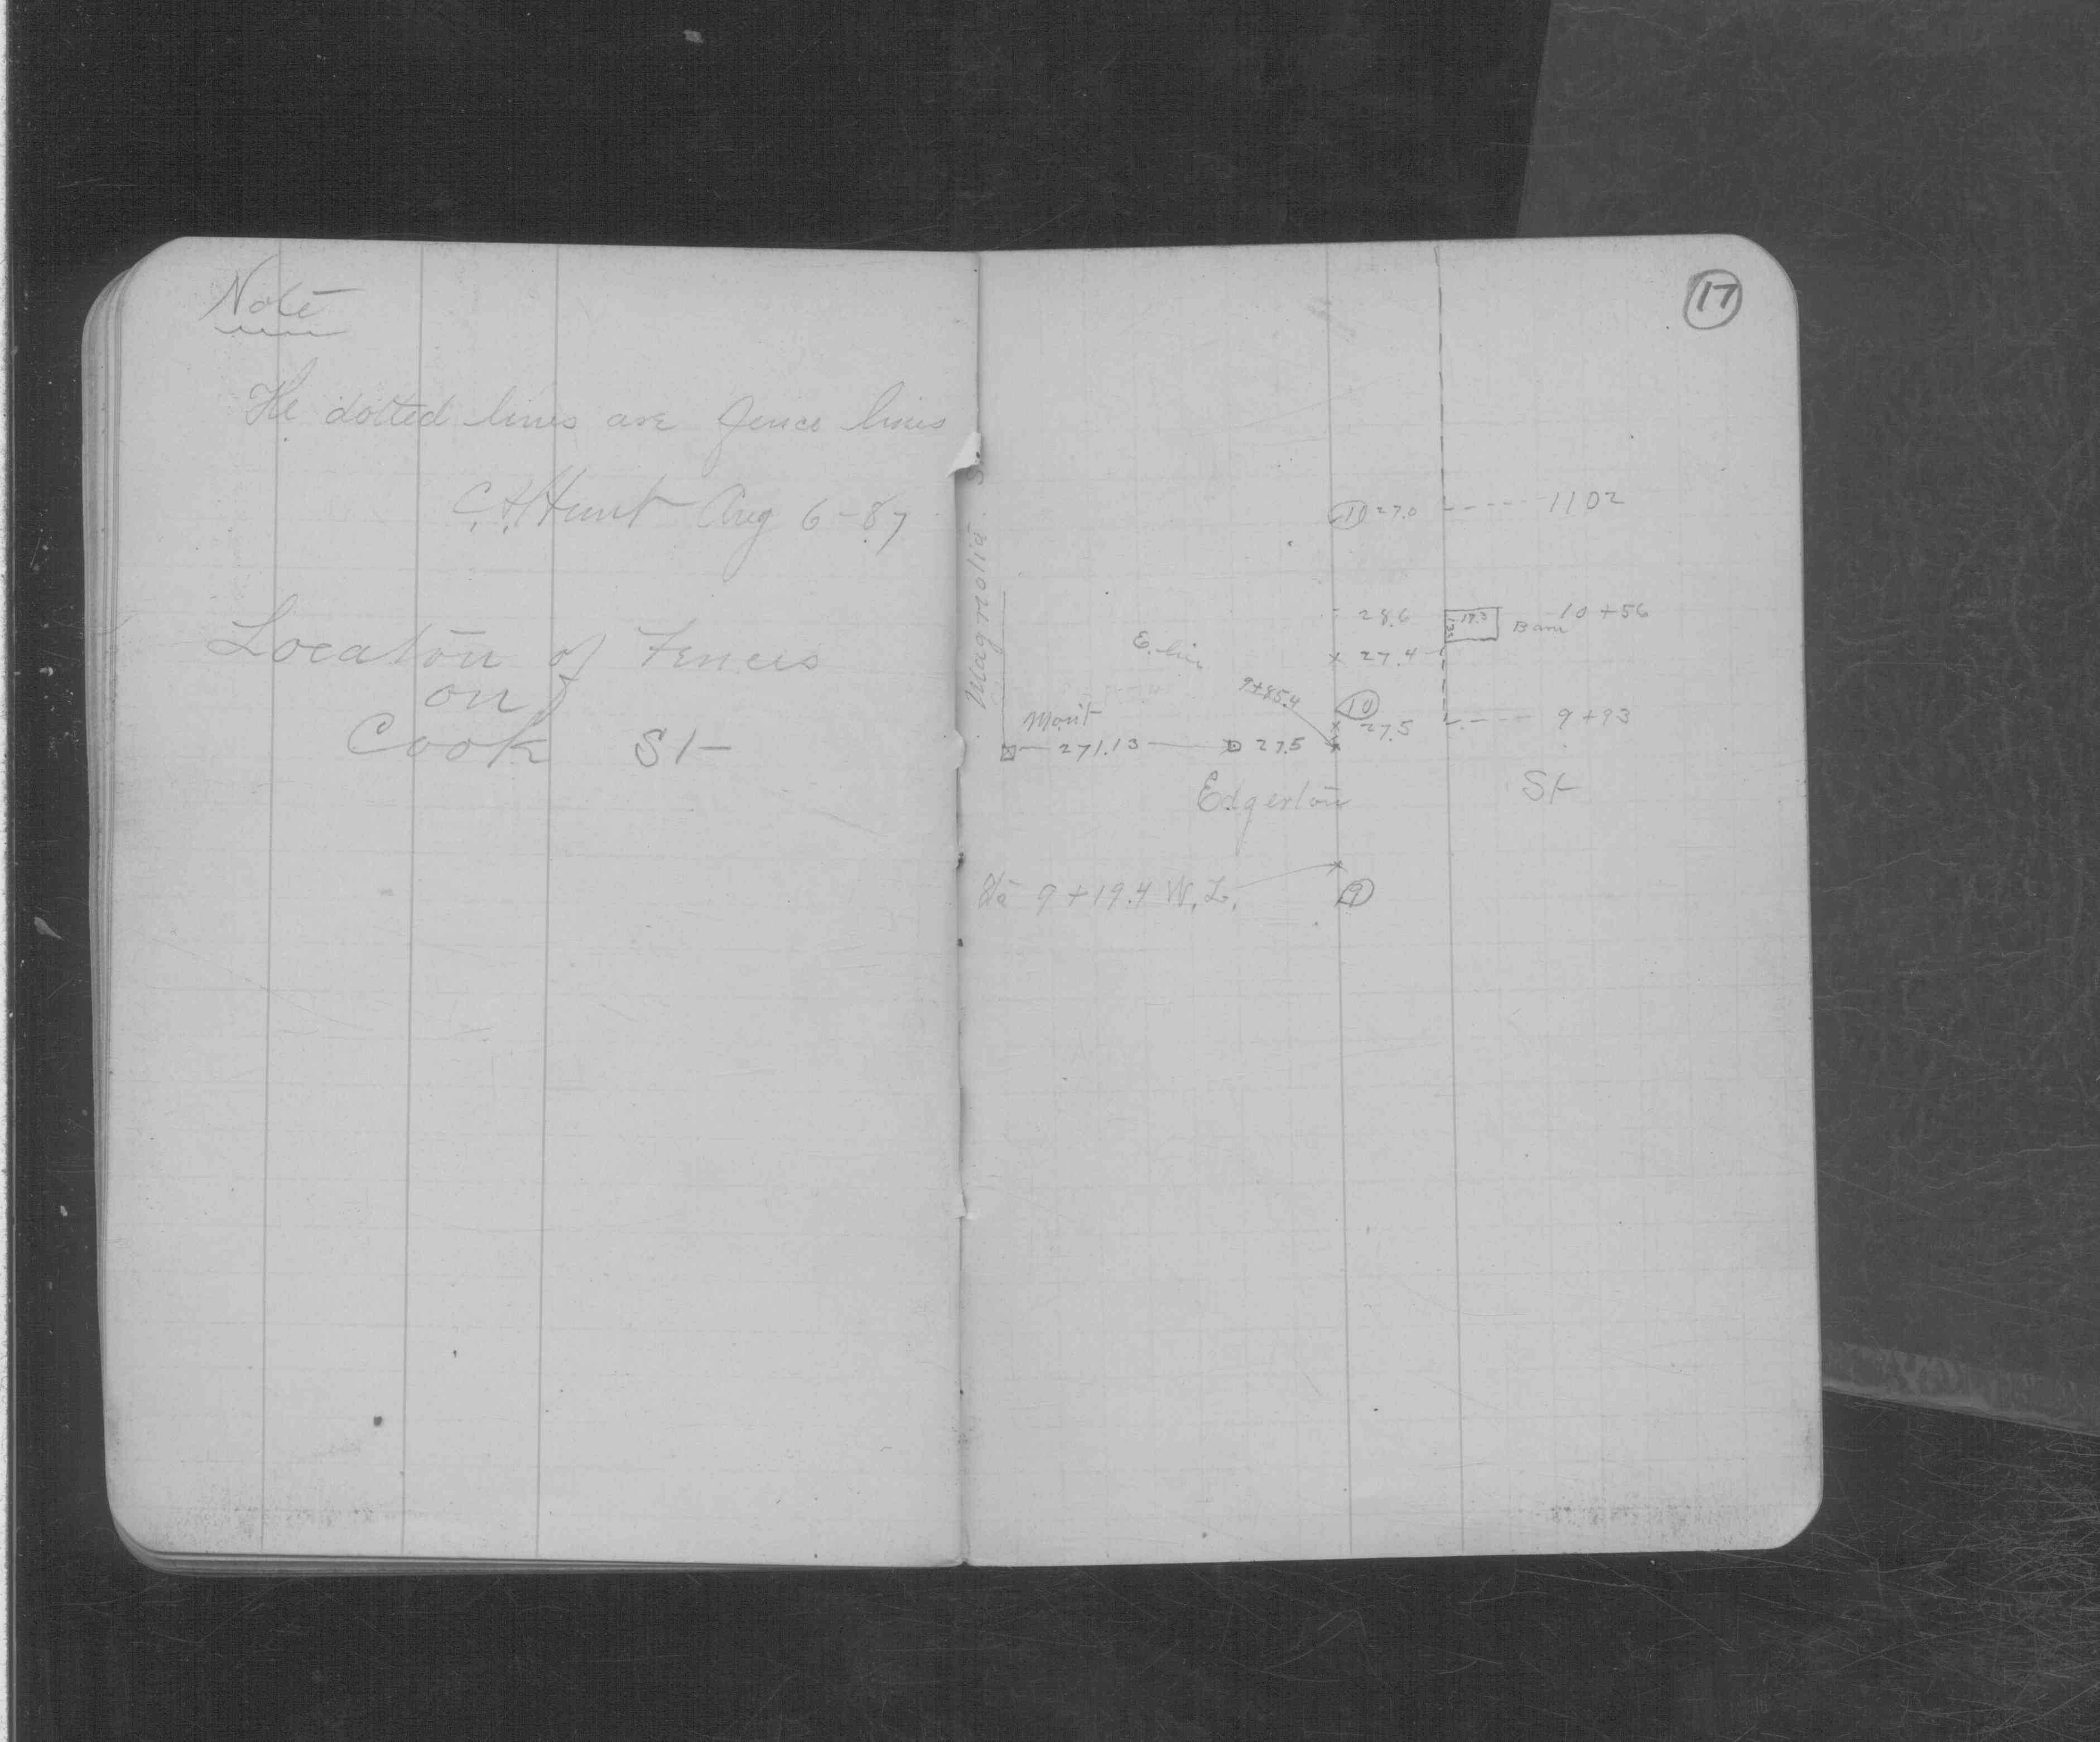 Note
The dotted lines are fence lines
C.H. Hunt Aug 6-87
Location of Fences
on
Cook St
17
Magnolia St
11 27.0 1102
28.6 19.3 Barn 10+56
E. line
27.4
9+85.4
10
Mon't
27.5 9+93
271.13 27.5
Edgerton St
Sta 9+19.4 W.L.
9